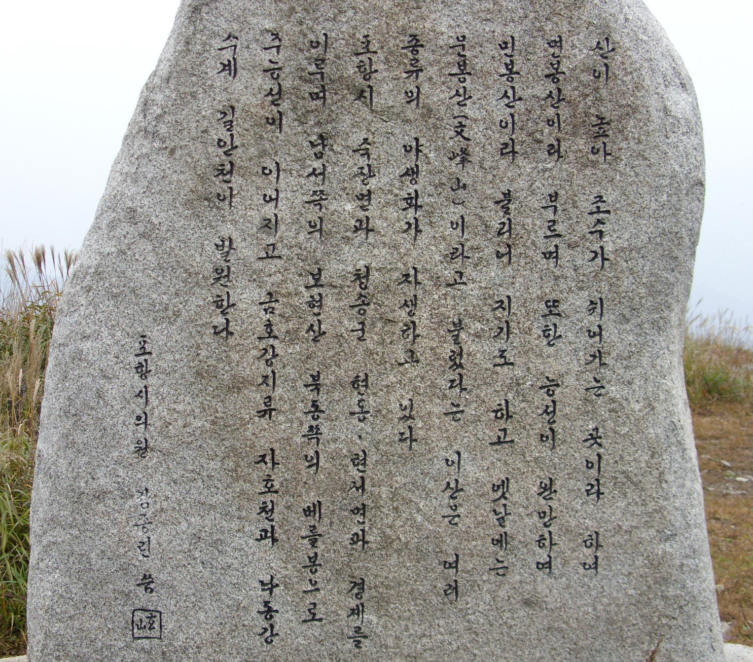 산이 높아 조수가 쉬어가는 곳이라 하여
면봉산이라 부르며 또한 능선이 완만하며
민봉산이라 불리어 지기도 하고 옛날에는
문봉산(文峰山)이라고 불렀다는 이산은 여러
종류의 야생화가 자생하고 있다
포항시 죽장면과 청송군 현동·현서면과 경계를
이루며 남서쪽의 보현산 북동쪽의 베틀봉으로
주능선이 이어지고 금호강지류 자호천과 낙동강
수계 길안천이 발원한다
포항시의원 김종린 씀